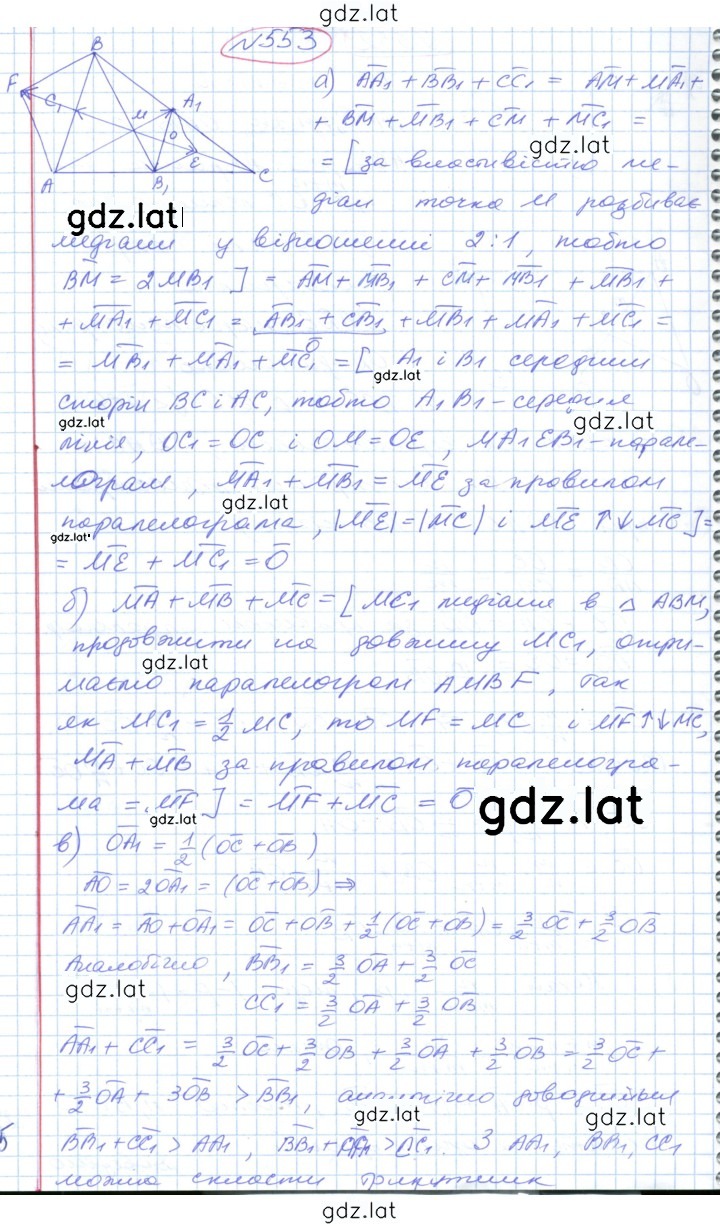 gdz.lat
№553
B
F
C₁
M
A₁
O
E
A
B₁
C
а) A̅A̅₁ + B̅B̅₁ + C̅C̅₁ = A̅M̅ + M̅A̅₁ +
+ B̅M̅ + M̅B̅₁ + C̅M̅ + M̅C̅₁ =
gdz.lat
= [за властивістю ме-
діан точка M розбиває
gdz.lat
медіани у відношенні 2:1, тобто
B̅M̅ = 2MB₁ ] = A̅M̅ + M̅B̅₁ + C̅M̅ + M̅B̅₁ + M̅B̅₁ +
+ M̅A̅₁ + M̅C̅₁ = A̅B̅₁ + C̅B̅₁ + M̅B̅₁ + M̅A̅₁ + M̅C̅₁ =
O̅
= M̅B̅₁ + M̅A̅₁ + M̅C̅₁ = [ A₁ і B₁ середини
gdz.lat
сторін BC і AC, тобто A₁B₁ - середня
gdz.lat
gdz.lat
лінія, OC₁ = OC і OM = OE, MA₁EB₁ - парале-
лограм, M̅A̅₁ + M̅B̅₁ = M̅E̅ за правилом
gdz.lat
паралелограма, |M̅E̅| = |M̅C̅| і M̅E̅ ↑↓ M̅C̅ ] =
gdz.lat
= M̅E̅ + M̅C̅₁ = O̅
б) M̅A̅ + M̅B̅ + M̅C̅ = [ MC₁ медіана в △ ABM,
продовжити на довжину MC₁, отри-
gdz.lat
маємо паралелограм AMBF, так
як MC₁ = ½ MC, то MF = MC і M̅F̅ ↑↓ M̅C̅,
M̅A̅ + M̅B̅ за правилом паралелогра-
ма = M̅F̅ ] = M̅F̅ + M̅C̅ = O̅
gdz.lat
gdz.lat
в) O̅A̅₁ = ½ (O̅C̅ + O̅B̅)
A̅O̅ = 2O̅A̅₁ = (O̅C̅ + O̅B̅) ⇒
A̅A̅₁ = A̅O̅ + O̅A̅₁ = O̅C̅ + O̅B̅ + ½ (O̅C̅ + O̅B̅) = 3/2 O̅C̅ + 3/2 O̅B̅
Аналогічно, B̅B̅₁ = 3/2 O̅A̅ + 3/2 O̅C̅
gdz.lat
C̅C̅₁ = 3/2 O̅A̅ + 3/2 O̅B̅
A̅A̅₁ + C̅C̅₁ = 3/2 O̅C̅ + 3/2 O̅B̅ + 3/2 O̅A̅ + 3/2 O̅B̅ = 3/2 O̅C̅ +
+ 3/2 O̅A̅ + 3O̅B̅ > B̅B̅₁, аналогічно доводиться
gdz.lat
gdz.lat
B̅B̅₁ + C̅C̅₁ > AA₁, B̅B̅₁ + A̅A̅₁ > C̅C̅₁. З AA₁, BB₁, CC₁
можна скласти трикутник
gdz.lat